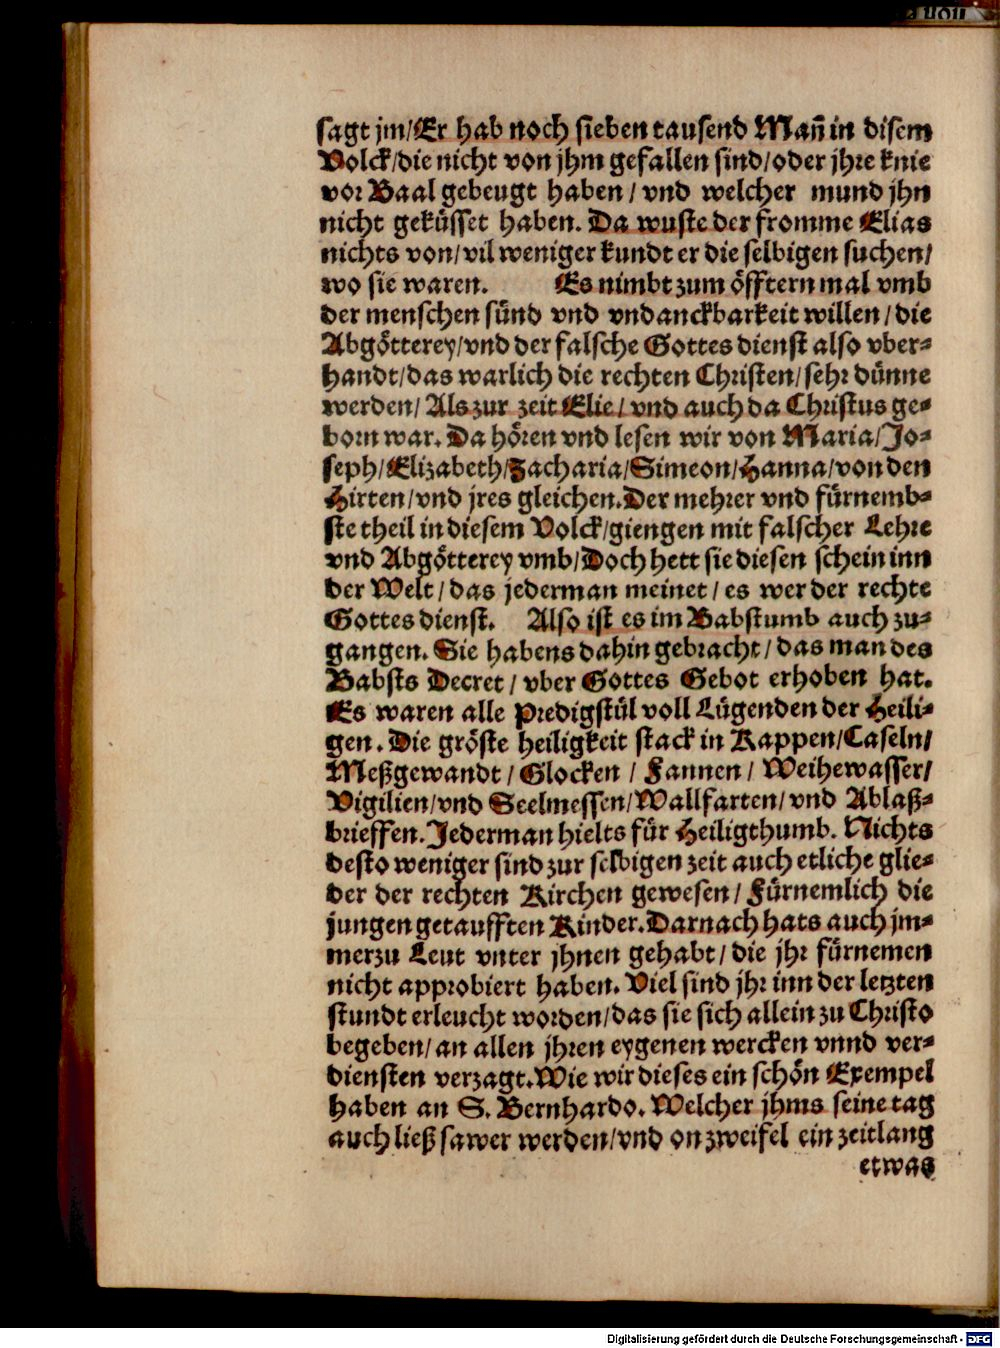 sagt jm/Er hab noch sieben tausend Mañ in disem
Volck/die nicht von jhm gefallen sind/oder jhre knie
vor Baal gebeugt haben / vnd welcher mund jhn
nicht geküsset haben. Da wuste der fromme Elias
nichts von/vil weniger kundt er die selbigen suchen/
wo sie waren. Es nimbt zum öfftern mal vmb
der menschen sünd vnd vndanckbarkeit willen/die
Abgötterey/vnd der falsche Gottes dienst also vber-
handt/das warlich die rechten Christen/sehr dünne
werden/ Als zur zeit Elie/vnd auch da Christus ge-
born war. Da hören vnd lesen wir von Maria/Jo-
seph/Elizabeth/Zacharia/Simeon/Hanna/von den
Hirten/vnd jres gleichen. Der mehrer vnd fürnemb-
ste theil in diesem Volck/giengen mit falscher Lehre
vnd Abgötterey vmb/Doch hett sie diesen schein inn
der Welt/das jederman meinet/es wer der rechte
Gottes dienst. Also ist es im Babstumb auch zu-
gangen. Sie habens dahin gebracht/das man des
Babsts Decret/vber Gottes Gebot erhoben hat.
Es waren alle Predigstül voll Lügenden der Heili-
gen. Die gröste heiligkeit stack in Kappen/Caseln/
Meßgewandt/Glocken/Fannen/Weihewasser/
Vigilien/vnd Seelmessen/Wallfarten/vnd Ablaß-
brieffen. Jederman hielts für Heiligthumb. Nichts
desto weniger sind zur selbigen zeit auch etliche glie-
der der rechten Kirchen gewesen/Fürnemlich die
jungen getaufften Kinder. Darnach hats auch jm-
merzu Leut vnter jhnen gehabt/die jhr fürnemen
nicht approbiert haben. Viel sind jhr inn der letzten
stundt erleucht worden/das sie sich allein zu Christo
begeben/an allen jhren eygenen wercken vnnd ver-
diensten verzagt. Wie wir dieses ein schön Exempel
haben an S. Bernhardo. Welcher jhms seine tag
auch ließ sawer werden/vnd on zweifel ein zeitlang
etwas
Digitalisierung gefördert durch die Deutsche Forschungsgemeinschaft - DFG